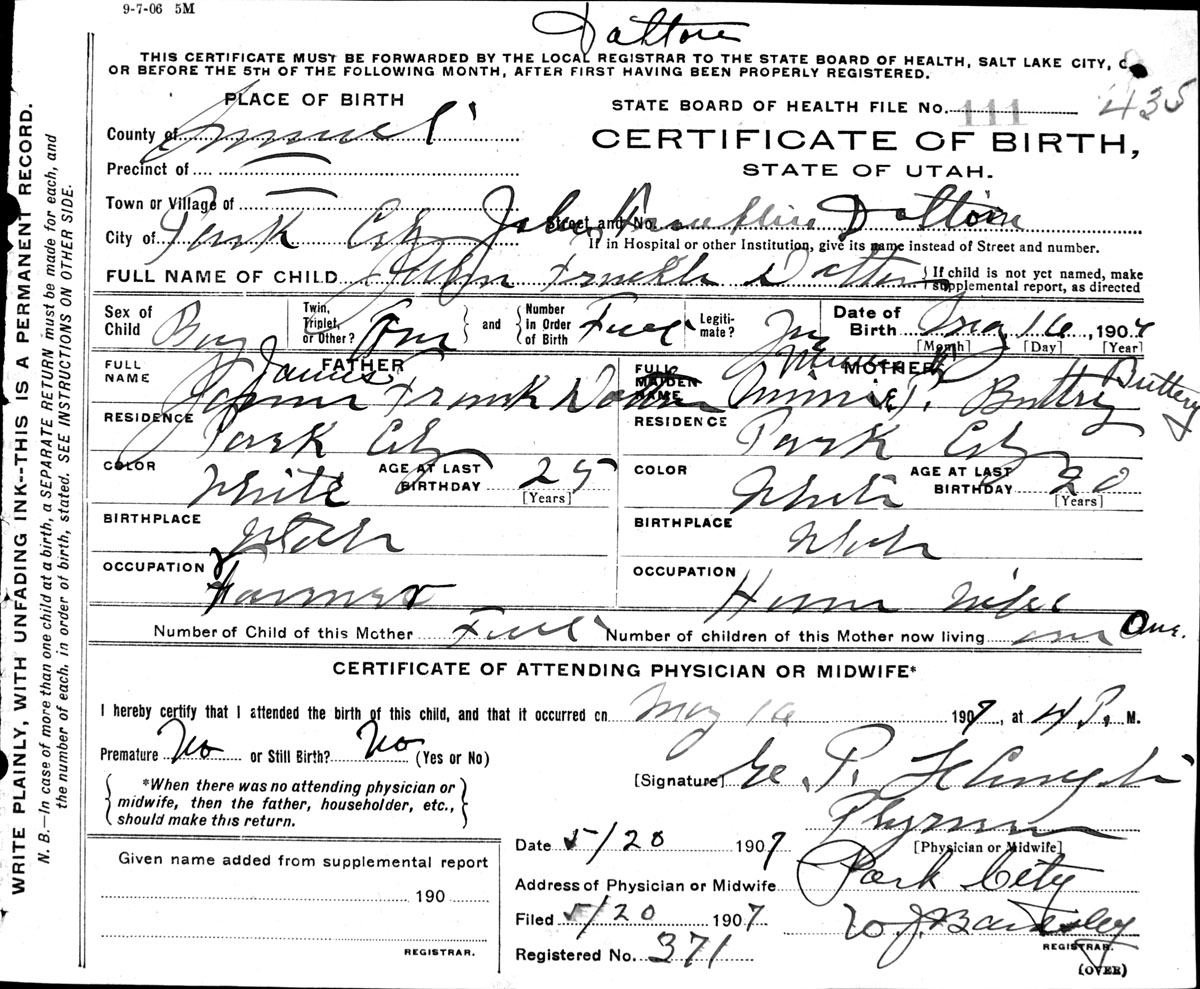 9-7-06 5M
Dalton
THIS CERTIFICATE MUST BE FORWARDED BY THE LOCAL REGISTRAR TO THE STATE BOARD OF HEALTH, SALT LAKE CITY,
OR BEFORE THE 5TH OF THE FOLLOWING MONTH, AFTER FIRST HAVING BEEN PROPERLY REGISTERED.
WRITE PLAINLY, WITH UNFADING INK--THIS IS A PERMANENT RECORD.
N. B.—In case of more than one child at a birth, a SEPARATE RETURN must be made for each, and
the number of each, in order of birth, stated. SEE INSTRUCTIONS ON OTHER SIDE.
PLACE OF BIRTH
STATE BOARD OF HEALTH FILE No. 111 435
County of Summit
CERTIFICATE OF BIRTH,
STATE OF UTAH.
Precinct of
Town or Village of
Street and No.
John Franklin Dalton
City of Park City
If in Hospital or other Institution, give its name instead of Street and number.
FULL NAME OF CHILD John Dalton
If child is not yet named, make
supplemental report, as directed
Sex of Child Boy
Twin, Triplet, or Other?
and
Number in Order of Birth
Legiti-mate?
Date of Birth May 16, 1907
[Month] [Day] [Year]
FATHER
MOTHER
FULL NAME James Frank Dalton
James
FULL MAIDEN NAME Minnie Buttry
Buttery
RESIDENCE Park City
RESIDENCE Park City
COLOR White
AGE AT LAST BIRTHDAY 25
[Years]
COLOR White
AGE AT LAST BIRTHDAY 20
[Years]
BIRTHPLACE Utah
BIRTHPLACE Utah
OCCUPATION Farmer
OCCUPATION House Wife
Number of Child of this Mother
Number of children of this Mother now living one One.
CERTIFICATE OF ATTENDING PHYSICIAN OR MIDWIFE*
I hereby certify that I attended the birth of this child, and that it occurred on May 16 1907, at 4 P. M.
Premature No or Still Birth? No (Yes or No)
[Signature]
*When there was no attending physician or
midwife, then the father, householder, etc.,
should make this return.
[Physician or Midwife]
Date 5/20 1907
Given name added from supplemental report
190
REGISTRAR.
Address of Physician or Midwife Park City
Filed 5/20 1907
W. J. Bardsley
REGISTRAR.
Registered No. 371
(OVER)